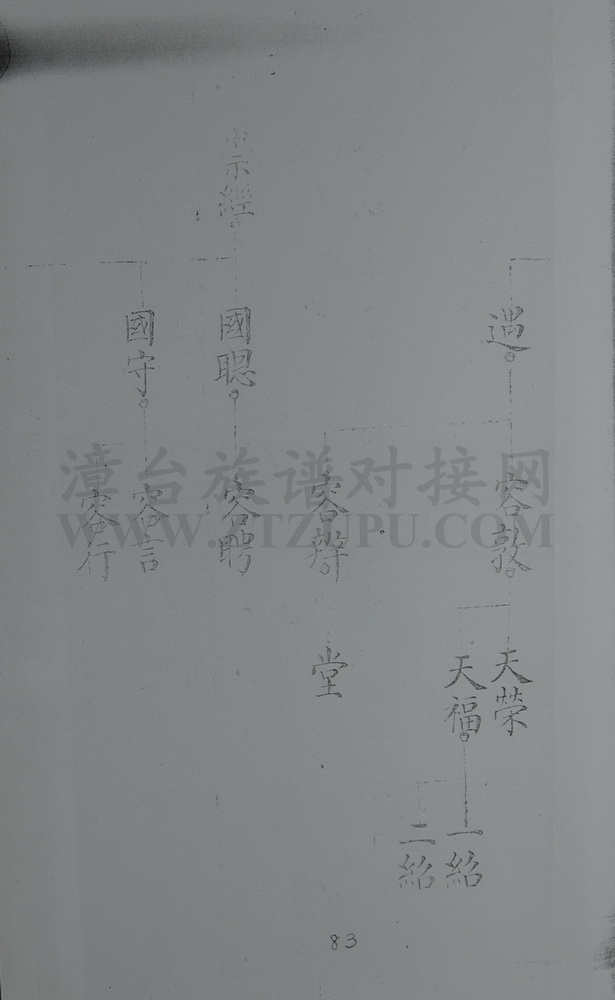 宗經
遇
國聰
國守
容敦
容辯
容聘
容言
容行
天榮
天福
堂
一紹
二紹
83
漳台族谱对接网
WWW.ZTZUPU.COM